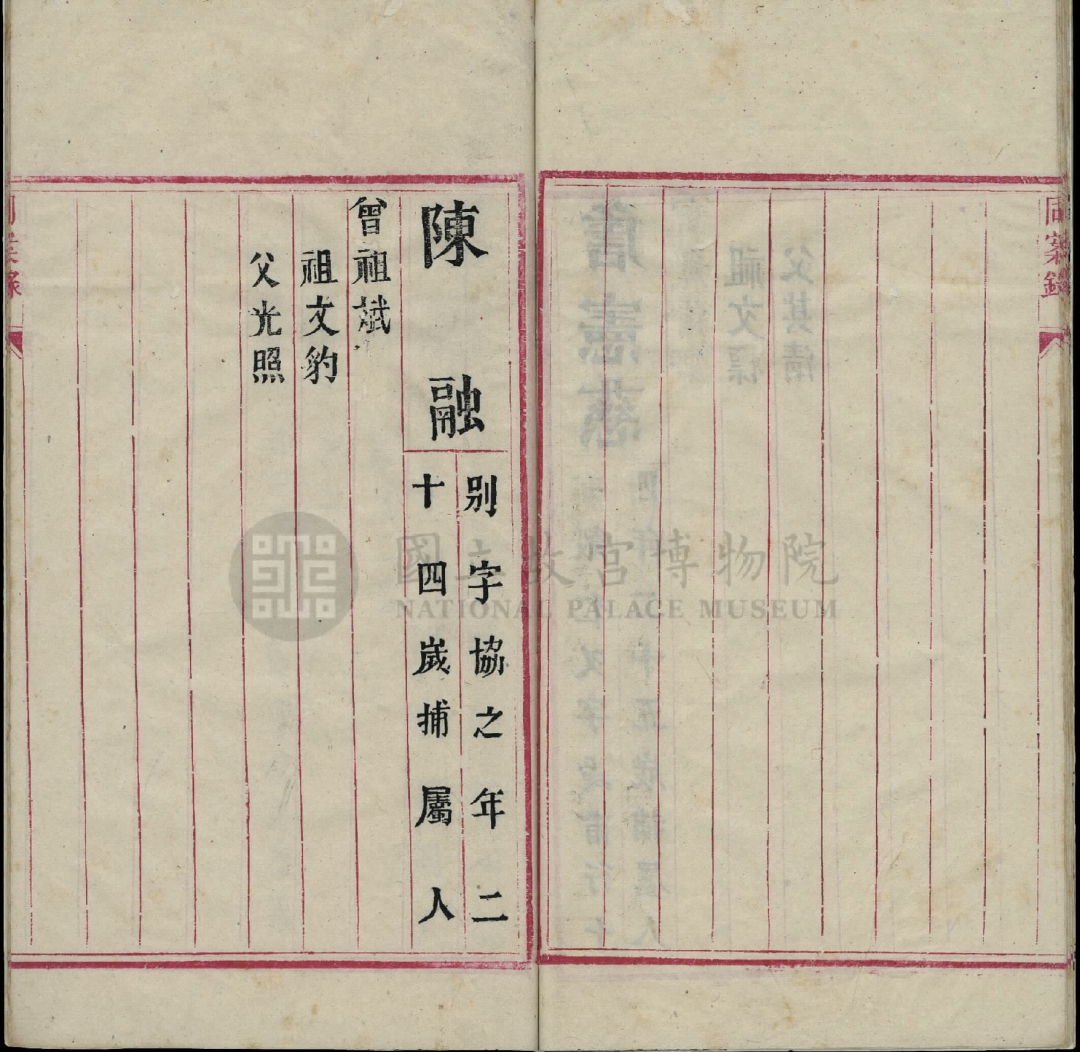 同寀錄
陳融
別字協之年二
十四歲捕屬人
曾祖斌
祖文豹
父光照
國立故宮博物院
NATIONAL PALACE MUSEUM